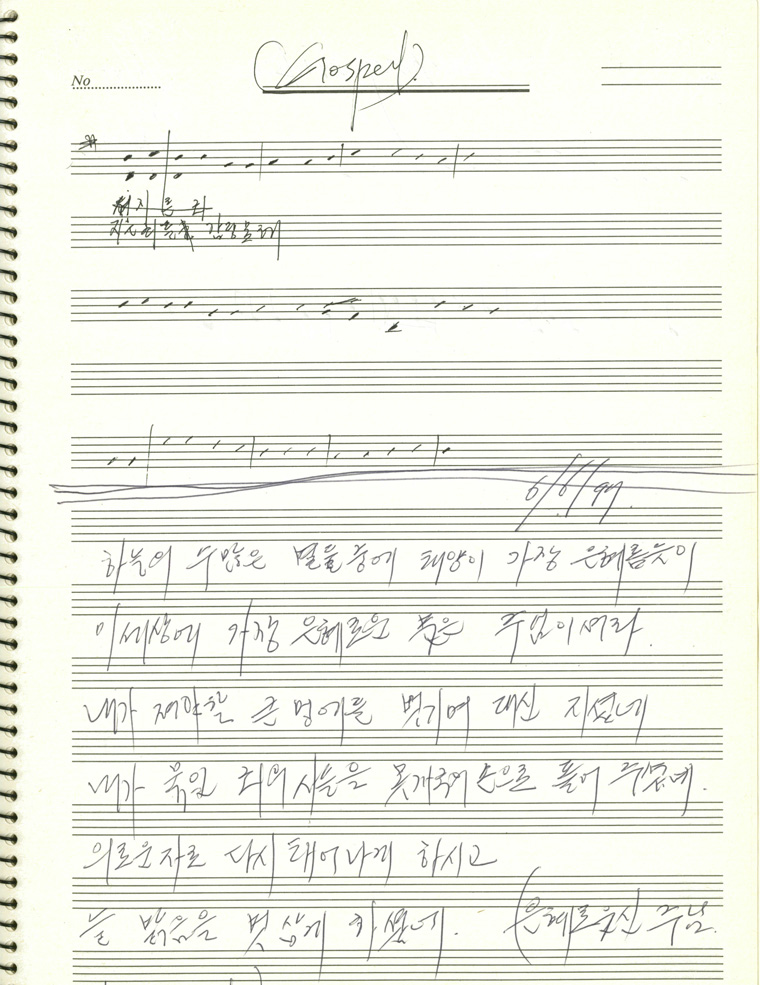 No
(Gospel)
6/6/97
하늘의 수많은 별들중에 태양이 가장 은혜롭듯이
이세상에 가장 은혜로운 분은 주님이셔라.
내가 져야할 큰 멍에를 벗기며 대신 지셨네
내가 묶인 죄의 사슬을 못자국의 손으로 풀어 주셨네.
의로운자로 다시 태어나게 하시고
늘 밝음을 벗삼게 하셨네. (은혜로우신 주님.